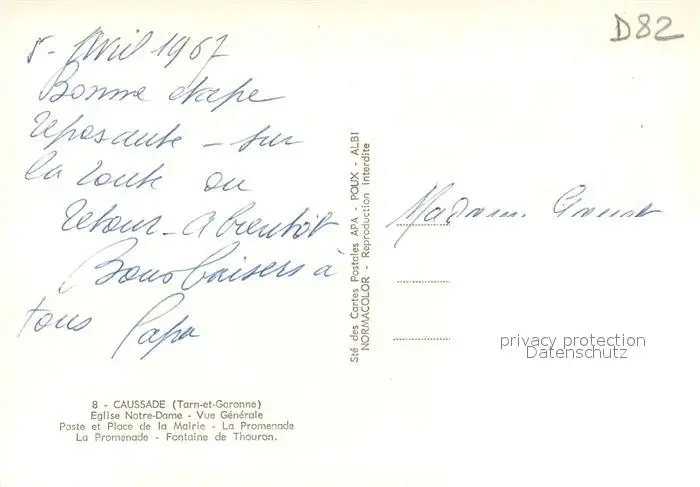 D82
8 - Avril 1967
Bonne étape
reposante - sur
la route du
retour - A bientôt
Bons baisers à
tous Papa
Madame
Sté des Cartes Postales APA - POUX - ALBI
NORMACOLOR - Reproduction interdite
privacy protection
Datenschutz
8 - CAUSSADE (Tarn-et-Garonne)
Eglise Notre-Dame - Vue Générale
Poste et Place de la Mairie - La Promenade
La Promenade - Fontaine de Thouron.